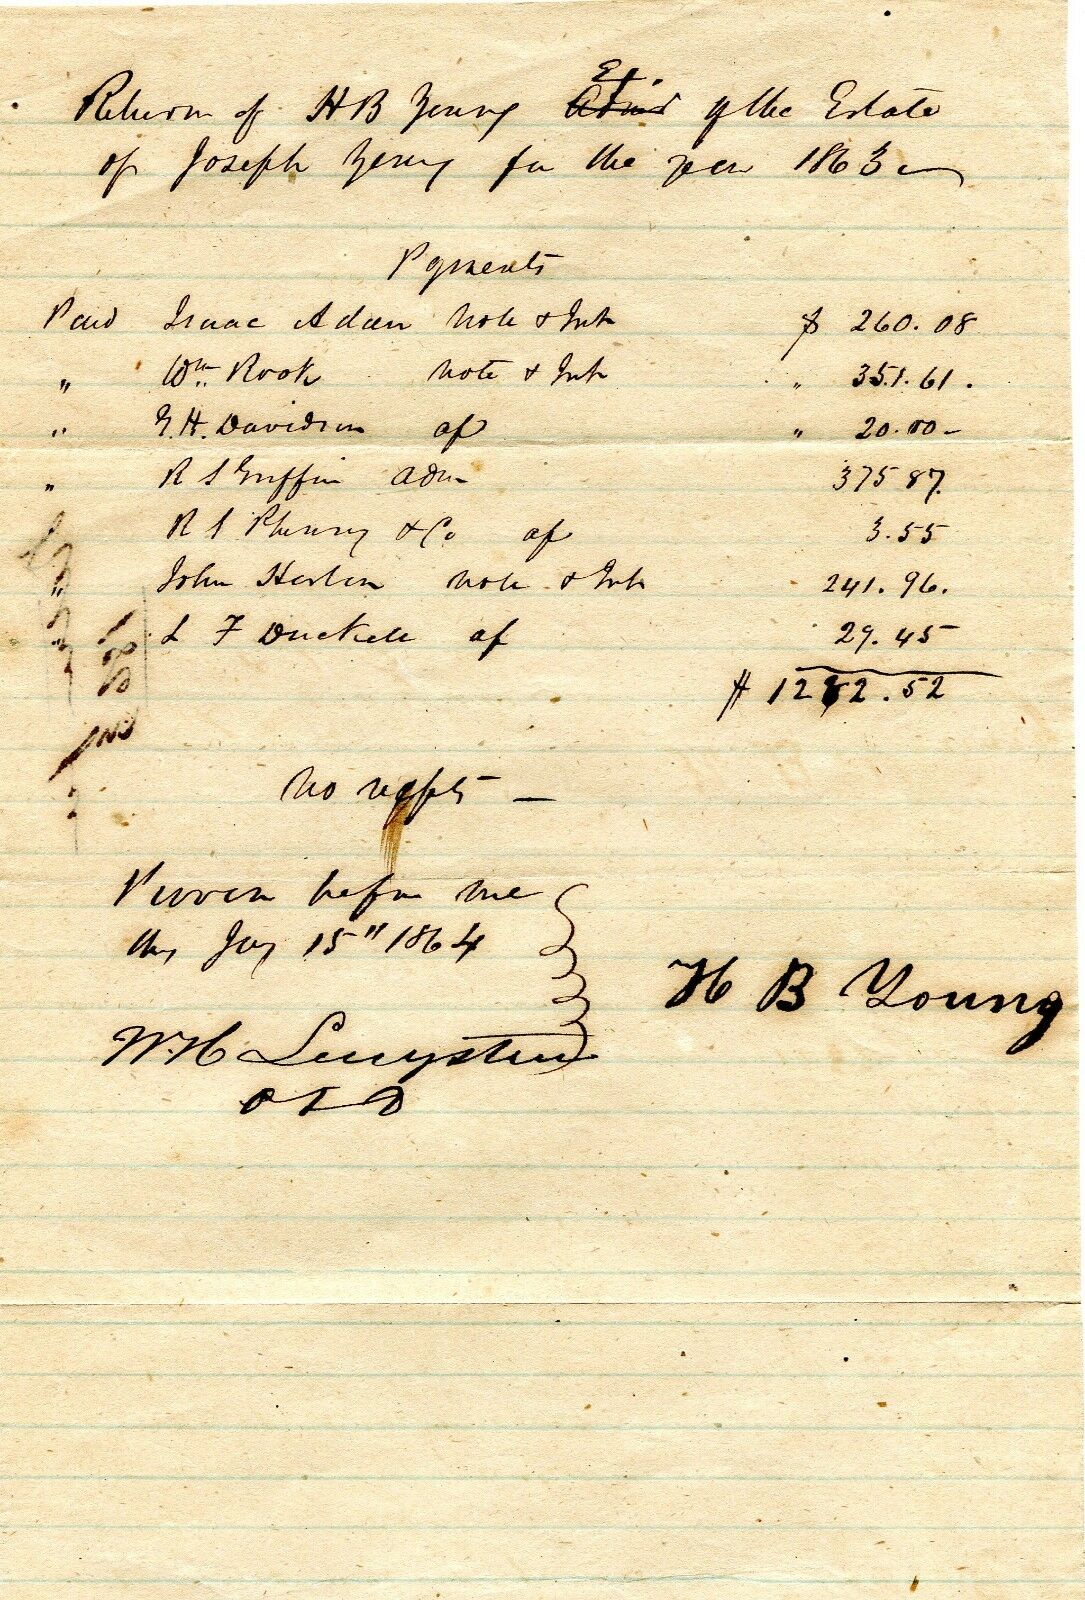 Return of H B Young Ex. Admr of the Estate
of Joseph Young for the year 1863
Payments
Paid Isaac Adair note & Int $ 260.08
" Wm. Rook note & Int " 351.61.
" G.H. Davidson a/c " 20.00-
" R S Griffin Adm 375 87.
R S Phinney & Co a/c 3.55
" John note & Int 241.96.
" L F Duckett a/c 29.45
$ 1282.52
No recpts —
Proven before me
this Jay 15" 1864
H B Young
W.H. Langston
O L D